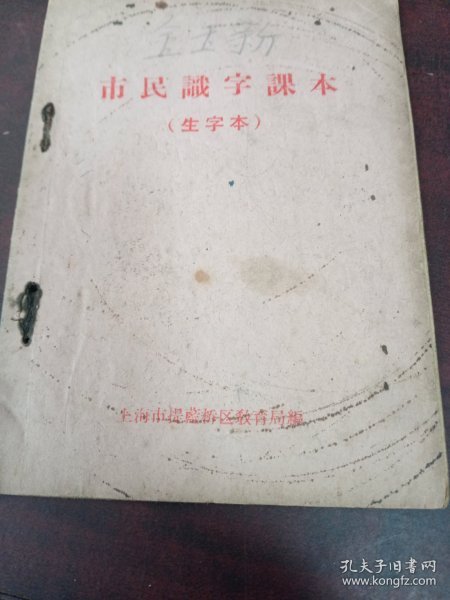 市民識字課本
（生字本）
上海市提籃桥区敎育局編
孔夫子旧书网
www.kongfz.com